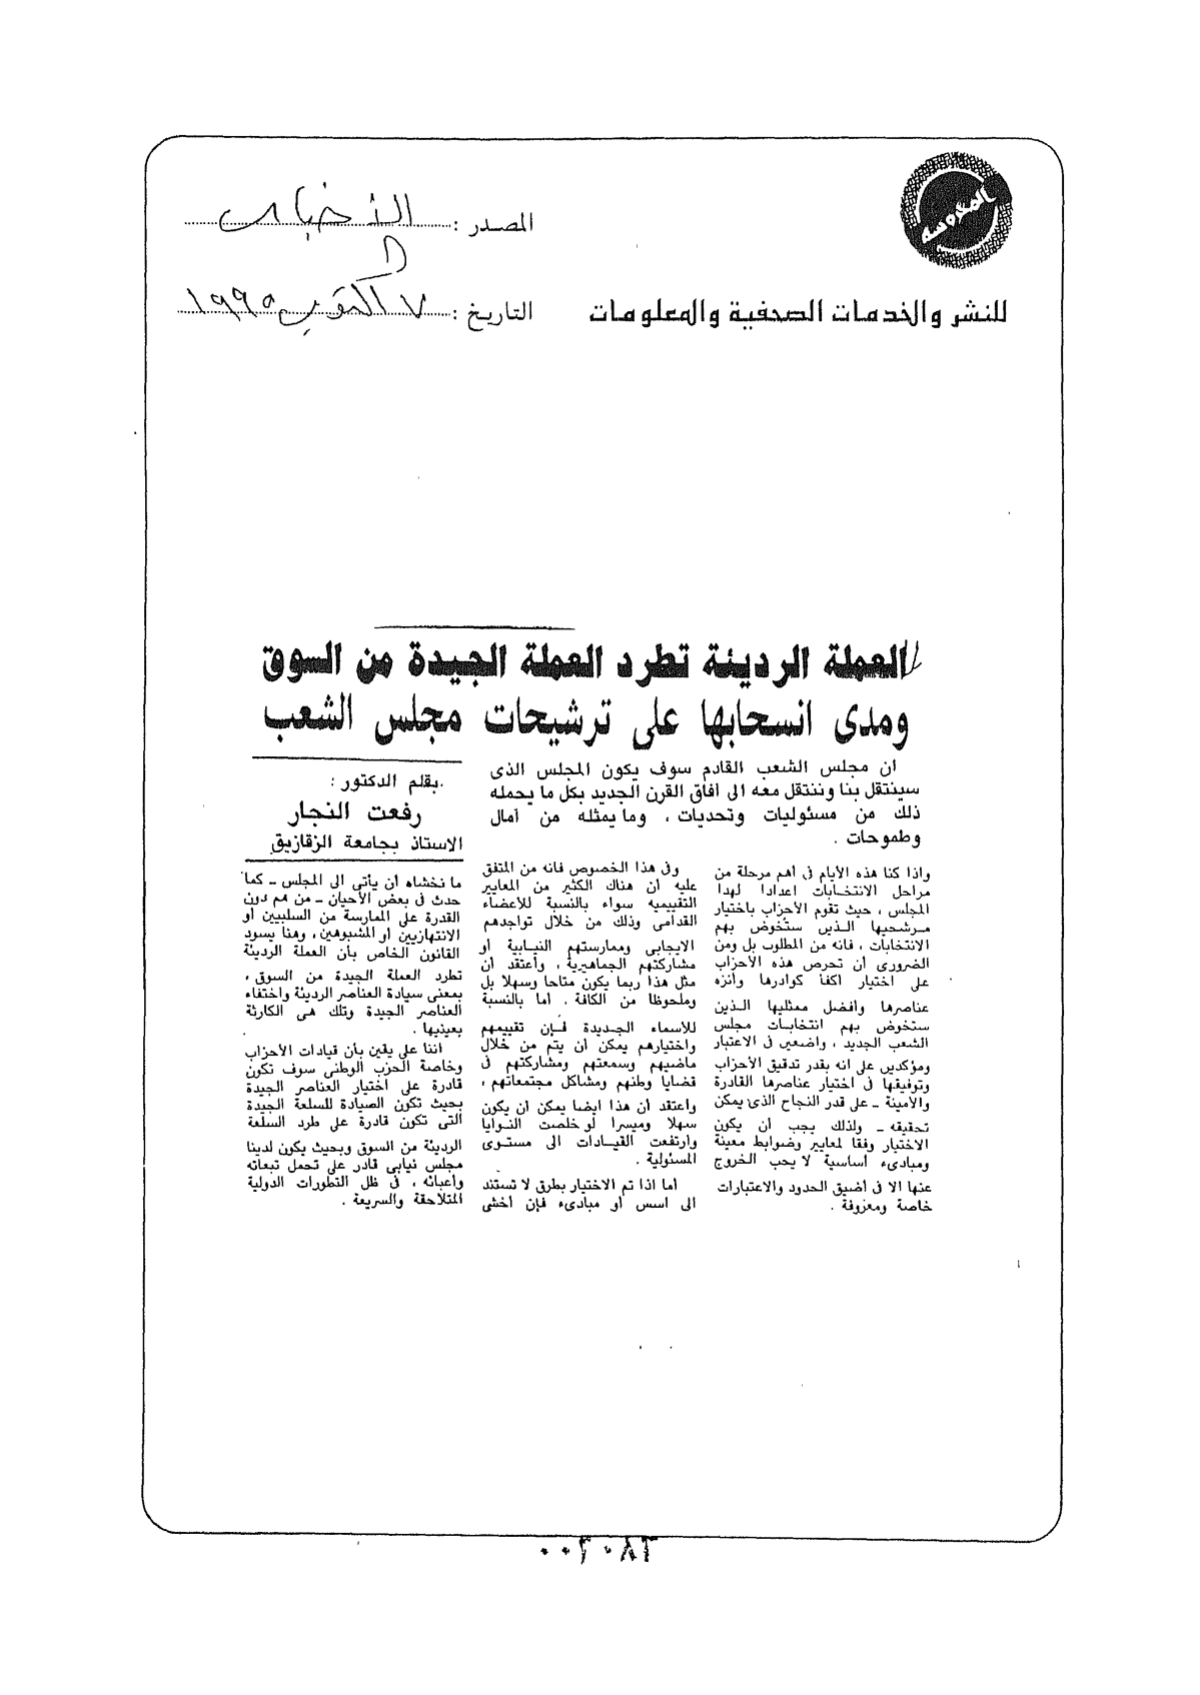 المدوسه
المصدر : الأخبار
التاريخ : ٧ أكتوبر ١٩٩٥
للنشر والخدمات الصحفية والمعلومات
العملة الرديئة تطرد العملة الجيدة من السوق
ومدى انسحابها على ترشيحات مجلس الشعب
بقلم الدكتور :
رفعت النجار
الاستاذ بجامعة الزقازيق
ان مجلس الشعب القادم سوف يكون المجلس الذى
سينتقل بنا وننتقل معه الى افاق القرن الجديد بكل ما يحمله
ذلك من مسئوليات وتحديات ، وما يمثله من آمال
وطموحات .
واذا كنا هذه الأيام فى أهم مرحلة من
مراحل الانتخابات اعدادا لهذا
المجلس ، حيث تقوم الأحزاب باختيار
مرشحيها الذين ستخوض بهم
الانتخابات ، فانه من المطلوب بل ومن
الضرورى أن تحرص هذه الأحزاب
على اختيار اكفأ كوادرها وأنزه
عناصرها وأفضل ممثليها الذين
ستخوض بهم انتخابات مجلس
الشعب الجديد ، واضعين فى الاعتبار
ومؤكدين على انه بقدر تدقيق الأحزاب
وتوفيقها فى اختيار عناصرها القادرة
والأمينة ـ على قدر النجاح الذى يمكن
تحقيقه ـ ولذلك يجب ان يكون
الاختيار وفقا لمعايير وضوابط معينة
ومبادىء أساسية لا يجب الخروج
عنها الا فى أضيق الحدود والاعتبارات
خاصة ومعروفة .
وفى هذا الخصوص فانه من المتفق
عليه ان هناك الكثير من المعايير
التقييمية سواء بالنسبة للأعضاء
القدامى وذلك من خلال تواجدهم
الايجابى وممارستهم النيابية أو
مشاركتهم الجماهيرية ، وأعتقد أن
مثل هذا ربما يكون متاحا وسهلا بل
وملحوظا من الكافة . أما بالنسبة
للأسماء الجديدة فإن تقييمهم
واختيارهم يمكن أن يتم من خلال
ماضيهم وسمعتهم ومشاركتهم فى
قضايا وطنهم ومشاكل مجتمعاتهم ،
وأعتقد أن هذا ايضا يمكن أن يكون
سهلا وميسرا لو خلصت النوايا
وارتفعت القيادات الى مستوى
المسئولية .
أما اذا تم الاختيار بطرق لا تستند
الى اسس أو مبادىء فإن أخشى
ما نخشاه أن يأتى الى المجلس ـ كما
حدث فى بعض الأحيان ـ من هم دون
القدرة على الممارسة من السلبيين أو
الانتهازيين أو المشبوهين ، وهنا يسود
القانون الخاص بأن العملة الرديئة
تطرد العملة الجيدة من السوق ،
بمعنى سيادة العناصر الرديئة واختفاء
العناصر الجيدة وتلك هى الكارثة
بعينيها .
اننا على يقين بأن قيادات الأحزاب
وخاصة الحزب الوطنى سوف تكون
قادرة على اختيار العناصر الجيدة
بحيث تكون الصيادة للسلعة الجيدة
التى تكون قادرة على طرد السلعة
الرديئة من السوق وبحيث يكون لدينا
مجلس نيابى قادر على تحمل تبعاته
وأعبائه ، فى ظل التطورات الدولية
المتلاحقة والسريعة .